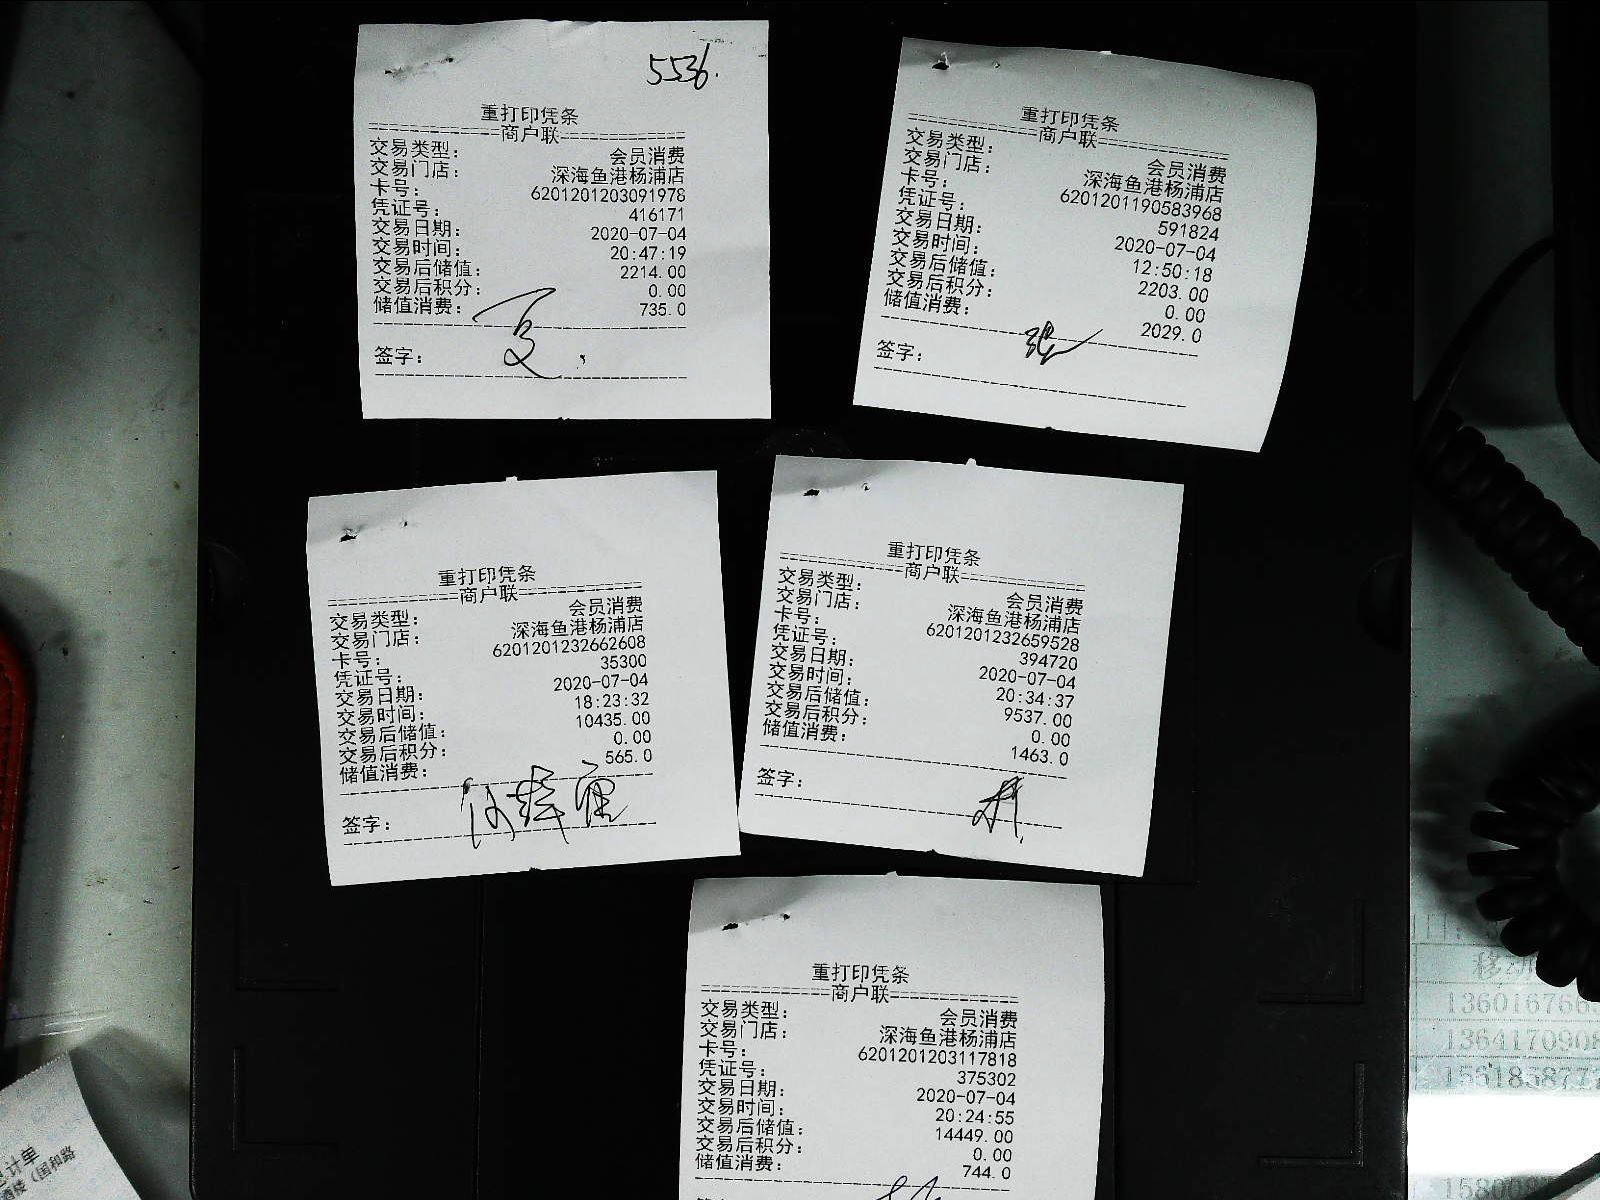 5536.
重打印凭条
================商户联===============
交易类型： 会员消费
交易门店： 深海鱼港杨浦店
卡号： 6201201203091978
凭证号： 416171
交易日期： 2020-07-04
交易时间： 20:47:19
交易后储值： 2214.00
交易后积分： 0.00
储值消费： 735.0
签字：
重打印凭条
================商户联===============
交易类型： 会员消费
交易门店： 深海鱼港杨浦店
卡号： 6201201190583968
凭证号： 591824
交易日期： 2020-07-04
交易时间： 12:50:18
交易后储值： 2203.00
交易后积分： 0.00
储值消费： 2029.0
签字：
重打印凭条
================商户联===============
交易类型： 会员消费
交易门店： 深海鱼港杨浦店
卡号： 6201201232662608
凭证号： 35300
交易日期： 2020-07-04
交易时间： 18:23:32
交易后储值： 10435.00
交易后积分： 0.00
储值消费： 565.0
签字：
重打印凭条
================商户联===============
交易类型： 会员消费
交易门店： 深海鱼港杨浦店
卡号： 6201201232659528
凭证号： 394720
交易日期： 2020-07-04
交易时间： 20:34:37
交易后储值： 9537.00
交易后积分： 0.00
储值消费： 1463.0
签字：
重打印凭条
================商户联===============
交易类型： 会员消费
交易门店： 深海鱼港杨浦店
卡号： 6201201203117818
凭证号： 375302
交易日期： 2020-07-04
交易时间： 20:24:55
交易后储值： 14449.00
交易后积分： 0.00
储值消费： 744.0
计单
（国和路